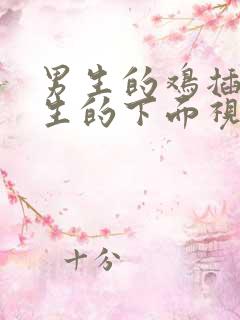 男生的鸡插
生的下面视
十分